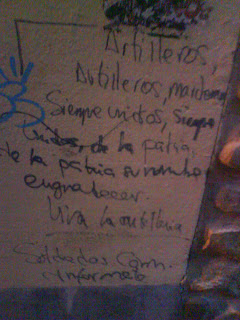 Artilleros,
Artilleros, marchemos
Siempre unidos, siempre
unidos, de la patria,
de la patria su nombre
engradecer.
Viva la artilleria
Soldados Com.
informate